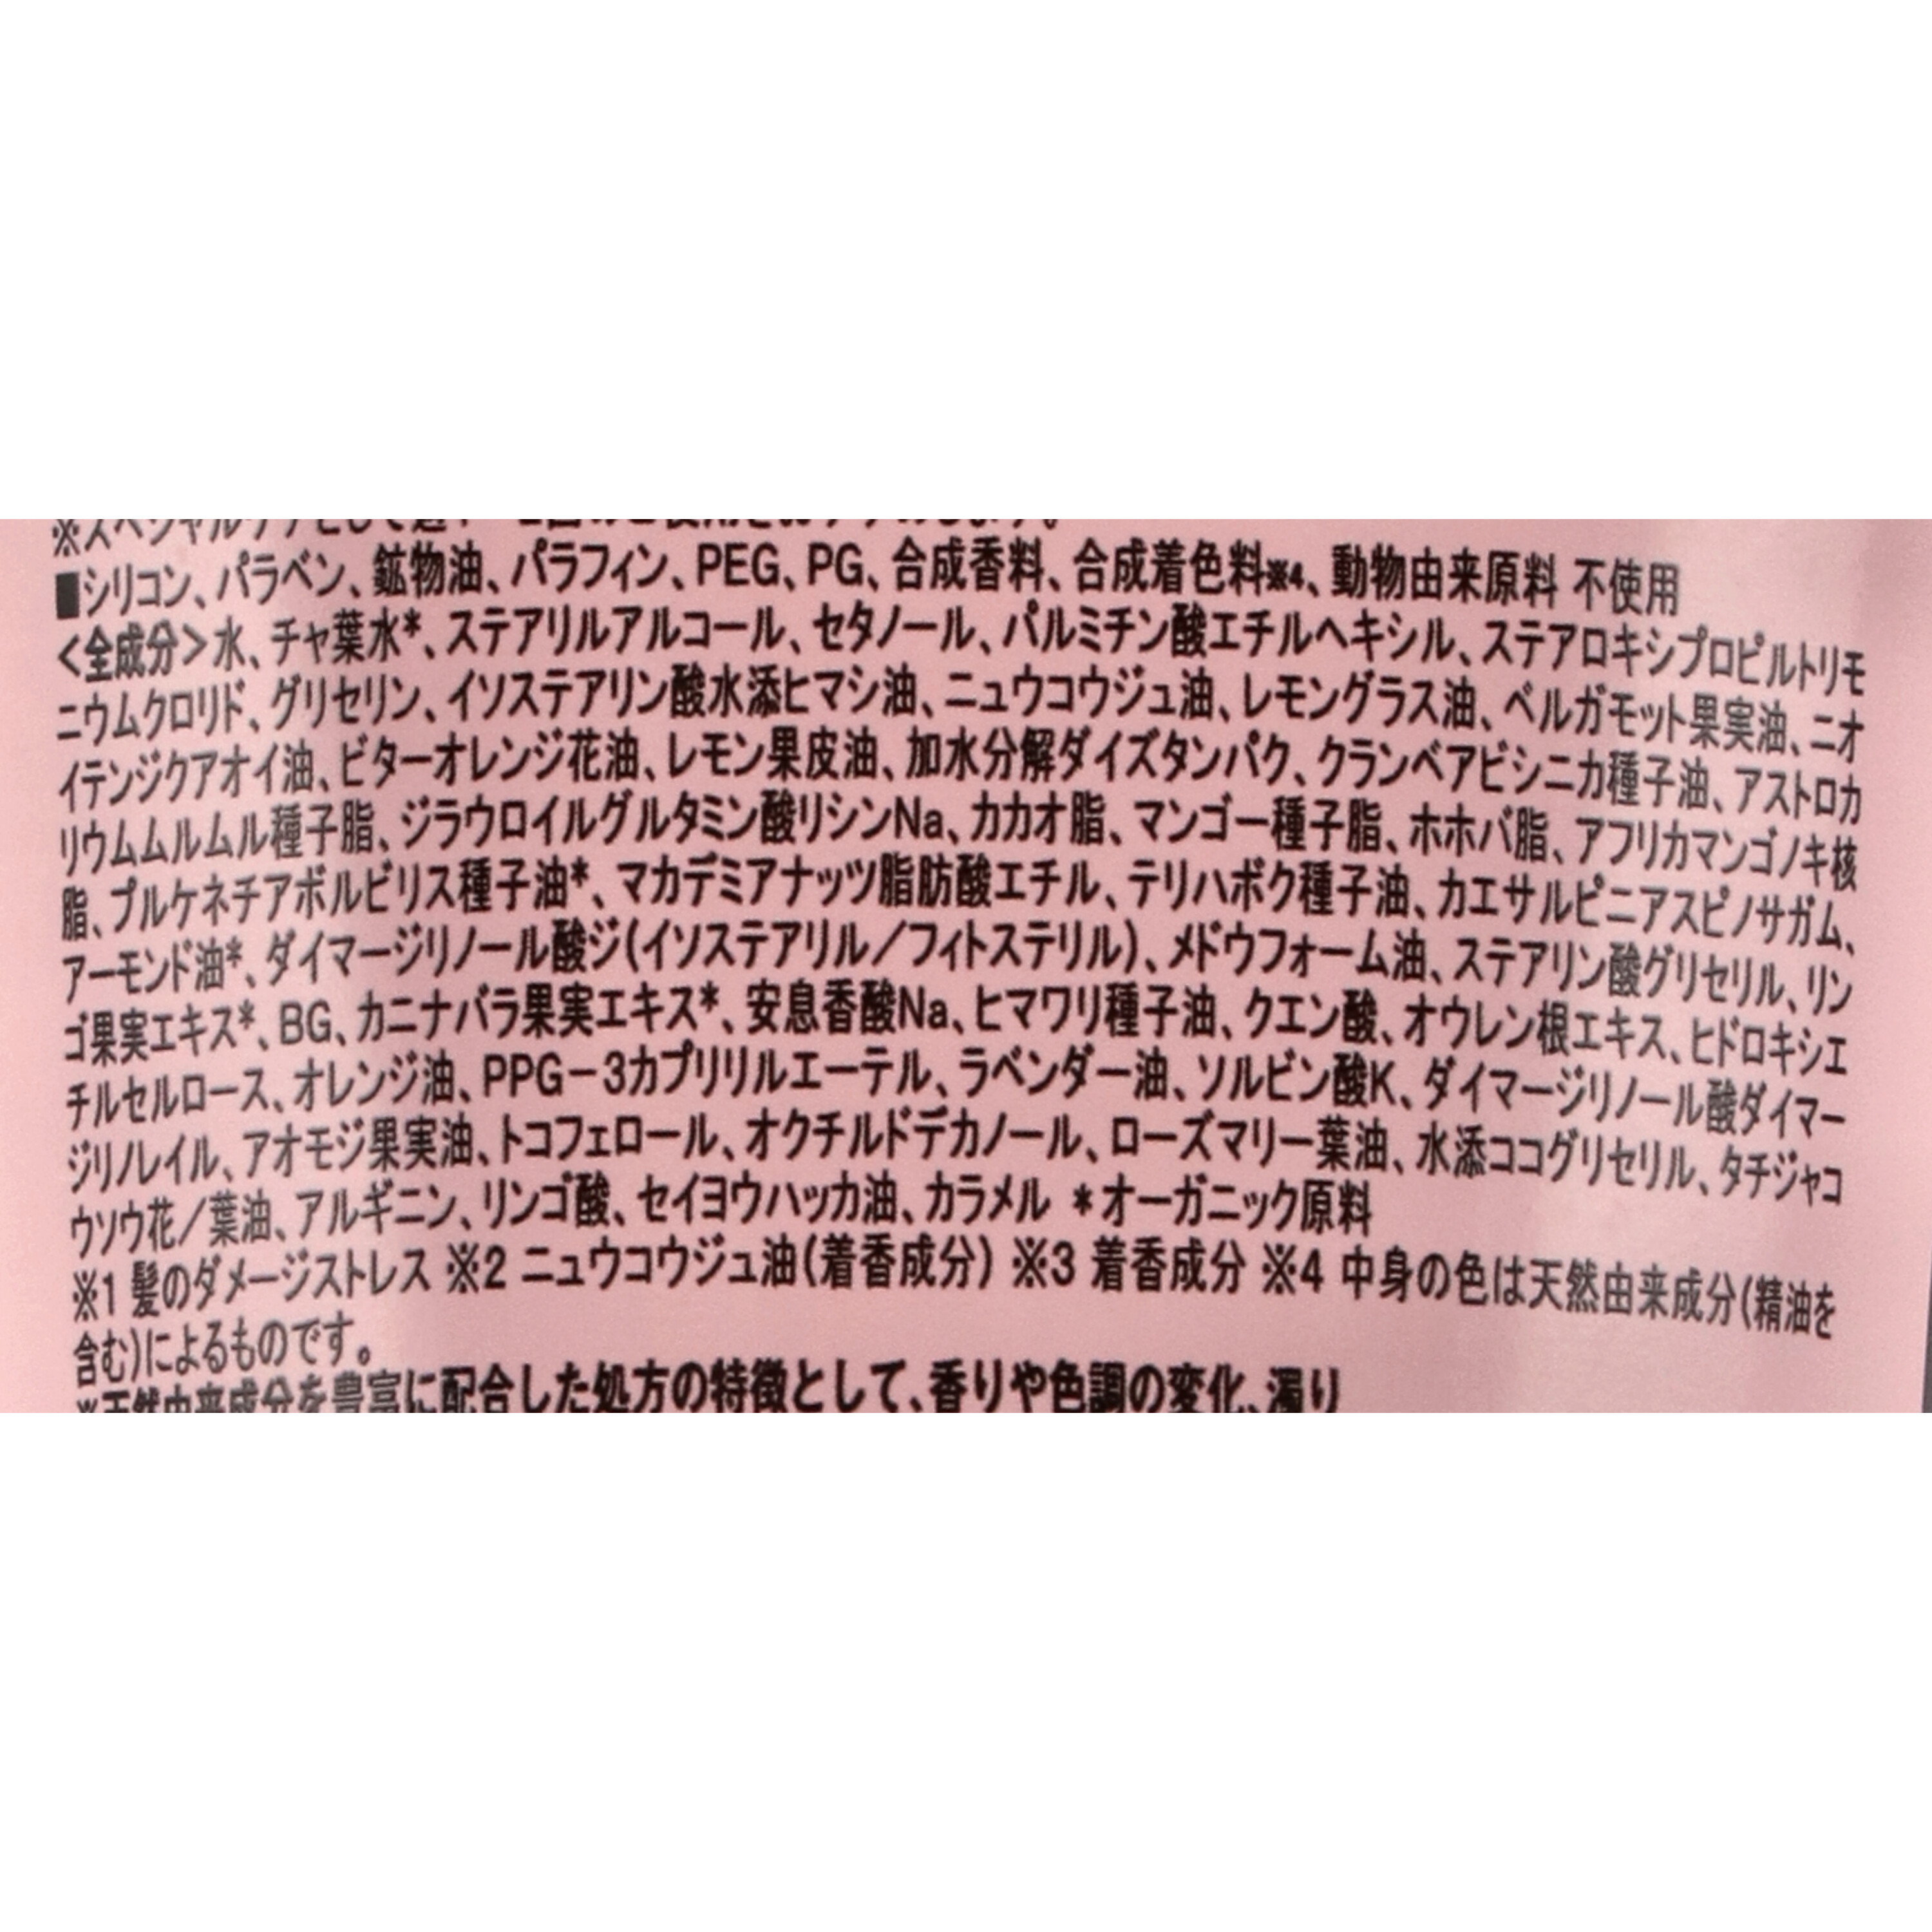 ■シリコン、パラベン、鉱物油、パラフィン、PEG、PG、合成香料、合成着色料※4、動物由来原料 不使用
＜全成分＞水、チャ葉水*、ステアリルアルコール、セタノール、パルミチン酸エチルヘキシル、ステアロキシプロピルトリモ
ニウムクロリド、グリセリン、イソステアリン酸水添ヒマシ油、ニュウコウジュ油、レモングラス油、ベルガモット果実油、ニオ
イテンジクアオイ油、ビターオレンジ花油、レモン果皮油、加水分解ダイズタンパク、クランベアビシニカ種子油、アストロカ
リウムムルムル種子脂、ジラウロイルグルタミン酸リシンNa、カカオ脂、マンゴー種子脂、ホホバ脂、アフリカマンゴノキ核
脂、プルケネチアボルビリス種子油*、マカデミアナッツ脂肪酸エチル、テリハボク種子油、カエサルピニアスピノサガム、
アーモンド油*、ダイマージリノール酸ジ(イソステアリル／フィトステリル)、メドウフォーム油、ステアリン酸グリセリル、リン
ゴ果実エキス*、BG、カニナバラ果実エキス*、安息香酸Na、ヒマワリ種子油、クエン酸、オウレン根エキス、ヒドロキシエ
チルセルロース、オレンジ油、PPG－3カプリリルエーテル、ラベンダー油、ソルビン酸K、ダイマージリノール酸ダイマー
ジリノレイル、アオモジ果実油、トコフェロール、オクチルドデカノール、ローズマリー葉油、水添ココグリセリル、タチジャコ
ウソウ花／葉油、アルギニン、リンゴ酸、セイヨウハッカ油、カラメル *オーガニック原料
※1 髪のダメージストレス ※2 ニュウコウジュ油(着香成分) ※3 着香成分 ※4 中身の色は天然由来成分(精油を
含む)によるものです。
※天然由来成分を豊富に配合した処方の特徴として、香りや色調の変化、濁り